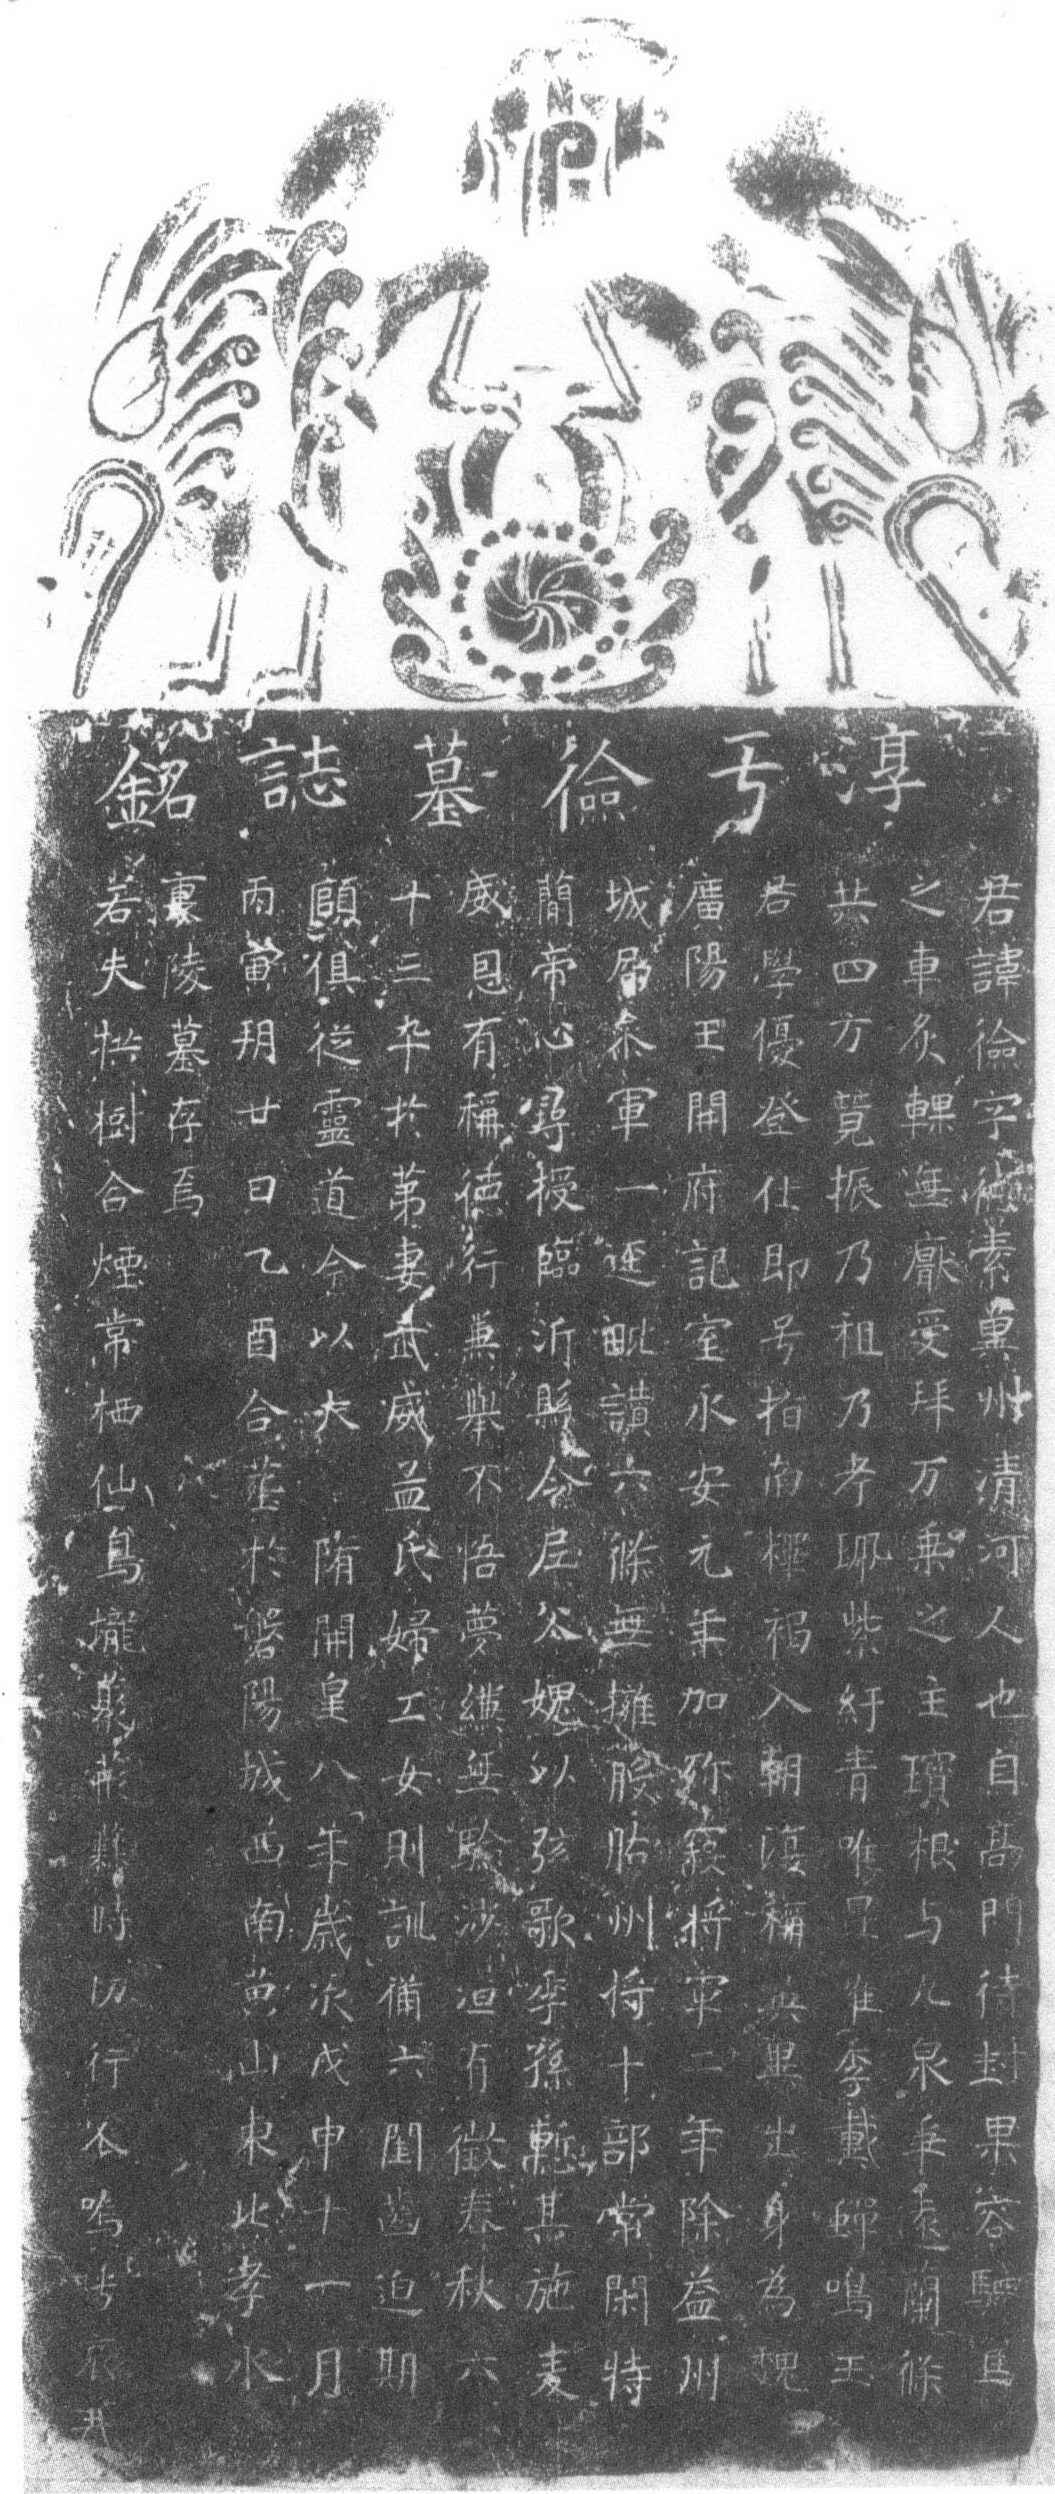 淳于儉墓誌銘
君諱儉字德素冀州清河人也自高門待封果容駟馬
之車炙輠無厭受拜万乘之主璸根与九泉垂遠蘭條
共四方競振乃祖乃考珮紫紆青唯昆唯季戴蟬鳴玉
君學優登仕即号指南檡褐入朝復稱無異出身為魏
廣陽王開府記室永安元年加殄寇將軍二年除益州
城局叅軍一逕毗讃六條無擁膜胋州將十部常閑特
蕳帝心尋授臨沂縣令屈父媿以弦歌季孫慙其施麦
威恩有稱德行兼舉不悟夢繢無驗涉洹有徵春秋六
十三卒於苐妻武威孟氏婦工女則訓備六閨齒迫期
頤俱從靈道今以大隋開皇八年歲次戊申十一月
丙寅朔廿日乙酉合塟於磐陽城西南黄山東北孝水
裏陵墓存焉
若夫拱樹合煙常栖仙鳥攏 時切行 鳴呼